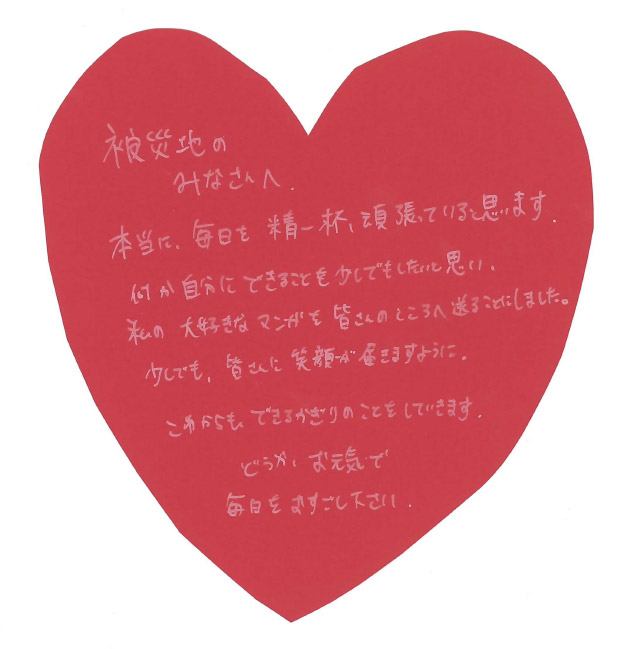 被災地の
みなさんへ.
本当に、毎日を 精一杯、頑張っていると思います.
何か自分にできることを少しでもしたいと思い、
私の 大好きな マンガを 皆さんのところへ 送ることにしました。
少しでも、皆さんに 笑顔が 届きますように.
これからも、できるかぎりのことをしていきます.
どうか、お元気で
毎日をおすごし下さい.